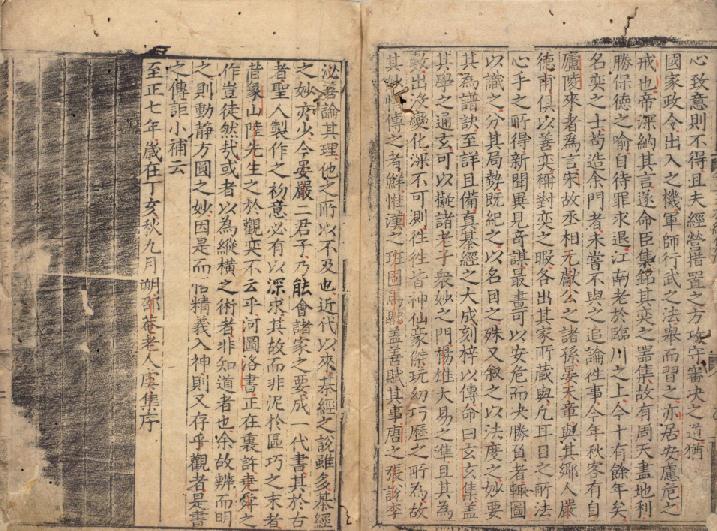 心致意則不得且夫經營措置之方攻守審決之道猶
國家政令出入之機軍師行武之法舉而習之亦居安慮危之
戒也帝深納其言遂命臣集銘其弈之器集故有周天畫地制
勝保德之喻自待罪求退江南老於臨川之上今十有餘年矣
名奕之士苟造余門者未嘗不與之追論往事今年秋客有自
廬陵來者為言宋故丞相元獻公之諸孫晏天章與其鄉人嚴
德甫俱以善奕稱對奕之暇各出其家所藏與凡耳目之所法
心手之所得新聞異見奇謀最畫可以安危而決勝負者輒圖
以識之分其局勢既紀之以名目之殊又叙之以法度之妙要
其為譜訣至詳且備真棊經之大成刻梓以傳命曰玄玄集蓋
其學之通玄可以擬諸老子衆妙之門揚雄大易之準且其為
數出沒變化深不可測往往皆神仙豪傑玩好巧歷之所為故
其妙惟傳之者鮮惟漢之班固馬融蓋嘗賦其事唐之張說李
泌嘗論其理他之所以不及也近代以來棊經之說雖多棊經
之妙亦少今晏嚴二君子乃能會諸家之要成一代書其於古
者聖人製作之初意必有以深求其故而非泥於區巧之末者
昔象山陸先生之於觀奕不云乎河圖洛書正在裏許堯舜之
作豈徒然哉或者以為縱橫之術者非知道者也余故辨而明
之則動靜方圓之妙因是而悟精義入神則又存乎觀者是書
之傳詎小補云
至正七年歲在丁亥秋九月朔邵菴老人虞集序